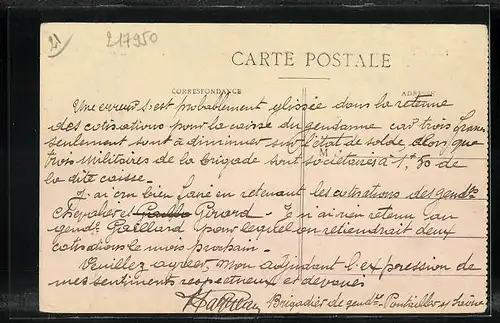 21
217950
CARTE POSTALE
CORRESPONDANCE
ADRESSE
Une erreur s'est probablement glissée dans la retenue
des cotisations pour la caisse du gendarme car trois francs
seulement sont à diminuer sur l'état de solde alors que
trois militaires de la brigade sont sociétaires à 1f 50 de
la dite caisse.
J'ai cru bien faire en retenant les cotisations des gendes
Chevalier et Girard. Je n'ai rien retenu au
gende Gaillard pour lequel on retiendrait deux
cotisations le mois prochain.
Veuillez agréer, mon adjudant l'expression de
mes sentiments respectueux et dévoués
Brigadier de gendie Pontailler sur Saône